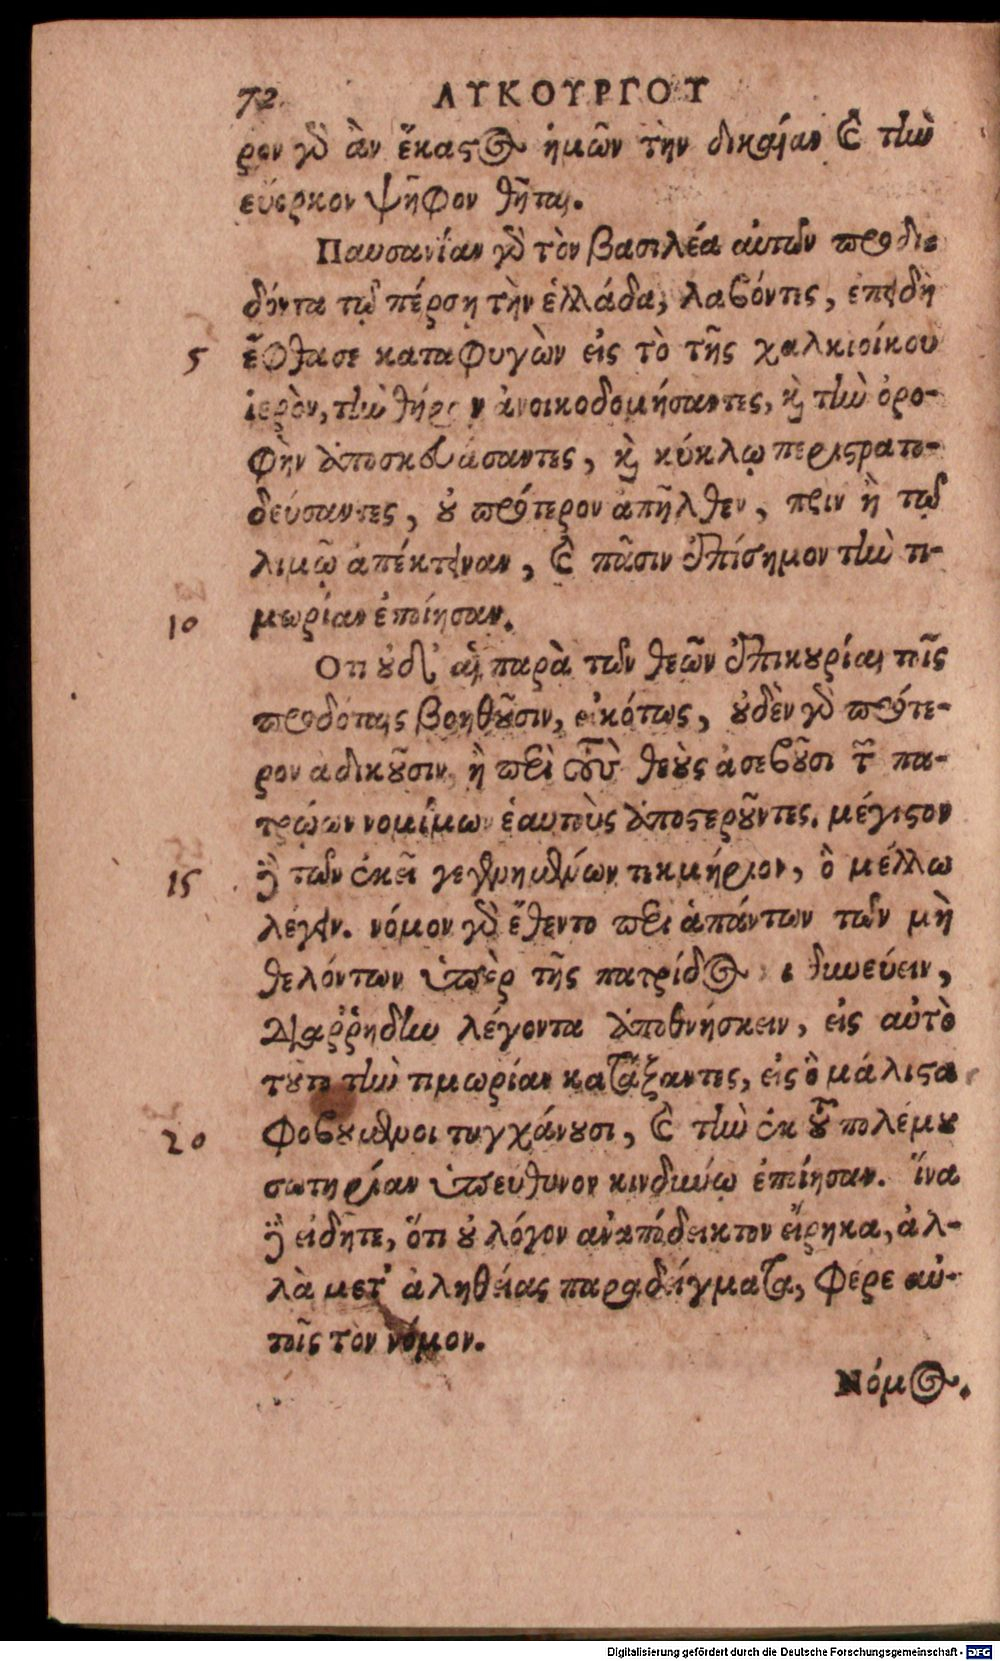 72 ΛΥΚΟΥΡΓΟΥ
ρον γὸ ἂν ἕκαστος ἡμῶν τὴν δικαίαν καὶ τὴν
εὔορκον ψῆφον θῆται.
Παυσανίαν γὸ τὸν βασιλέα αὐτῶν προδιδ
δόντα τῷ πέρσῃ τὴν ἑλλάδα, λαβόντες, ἐπειδὴ
5 ἔφθασε καταφυγὼν εἰς τὸ τῆς χαλκιοίκου
ἱερὸν, τὴν θύραν ἀνοικοδομήσαντες, καὶ τὴν ὀρο-
φὴν ἀποσκευάσαντες, καὶ κύκλῳ περιστρατο-
δεύσαντες, οὐ πρότερον ἀπῆλθεν, πριν ἢ τῷ
λιμῷ ἀπέκτειναν, καὶ πᾶσιν ἐπίσημον τὴν τι-
10 μωρίαν ἐποίησαν.
Οτι οὐδ' αἱ παρὰ τῶν θεῶν ἐπικουρίαι τοῖς
προδόταις βοηθοῦσιν, εἰκότως, οὐδὲν γὸ πρότε-
ρον ἀδικοῦσιν, ἢ περὶ τοὺς θεοὺς ἀσεβοῦσι τῶν πα-
τρῴων νομίμων ἑαυτοὺς ἀποστεροῦντες. μέγιστον
15 δὲ τῶν ἐκεῖ γεγενημένων τεκμήριον, ὃ μέλλω
λέγειν. νόμον γὸ ἔθεντο περὶ ἁπάντων τῶν μὴ
θελόντων ὑπὲρ τῆς πατρίδος κινδυνεύειν,
διαῤῥήδην λέγοντα ἀποθνήσκειν, εἰς αὐτὸ
τοῦτο τὴν τιμωρίαν κατάξαντες, εἰς ὃ μάλιστα
20 φοβούμενοι τυγχάνουσι, καὶ τὴν ἐκ τοῦ πολέμου
σωτηρίαν ὑπεύθυνον κινδύνῳ ἐποίησαν. ἵνα
δὲ εἰδῆτε, ὅτι οὐ λόγον ἀναπόδεικτον εἴρηκα, ἀλ-
λὰ μετ' ἀληθείας παραδείγματα, φέρε αὐ-
τοῖς τὸν νόμον.
Νόμος.
Digitalisierung gefördert durch die Deutsche Forschungsgemeinschaft - DFG